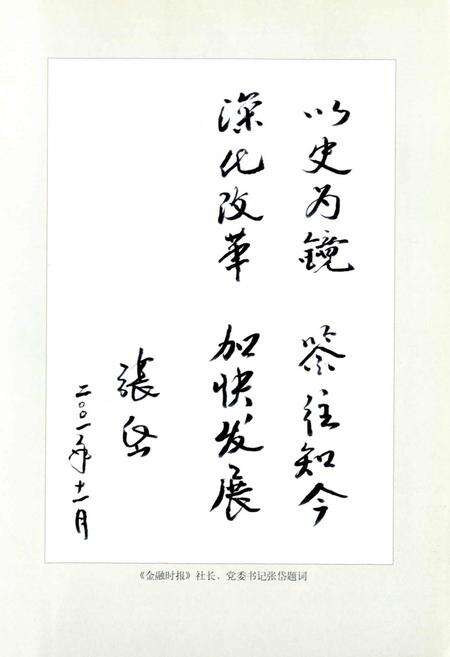 以史为镜 鉴往知今
深化改革 加快发展
張岱
二〇〇一年十一月
《金融时报》社长、党委书记张岱题词